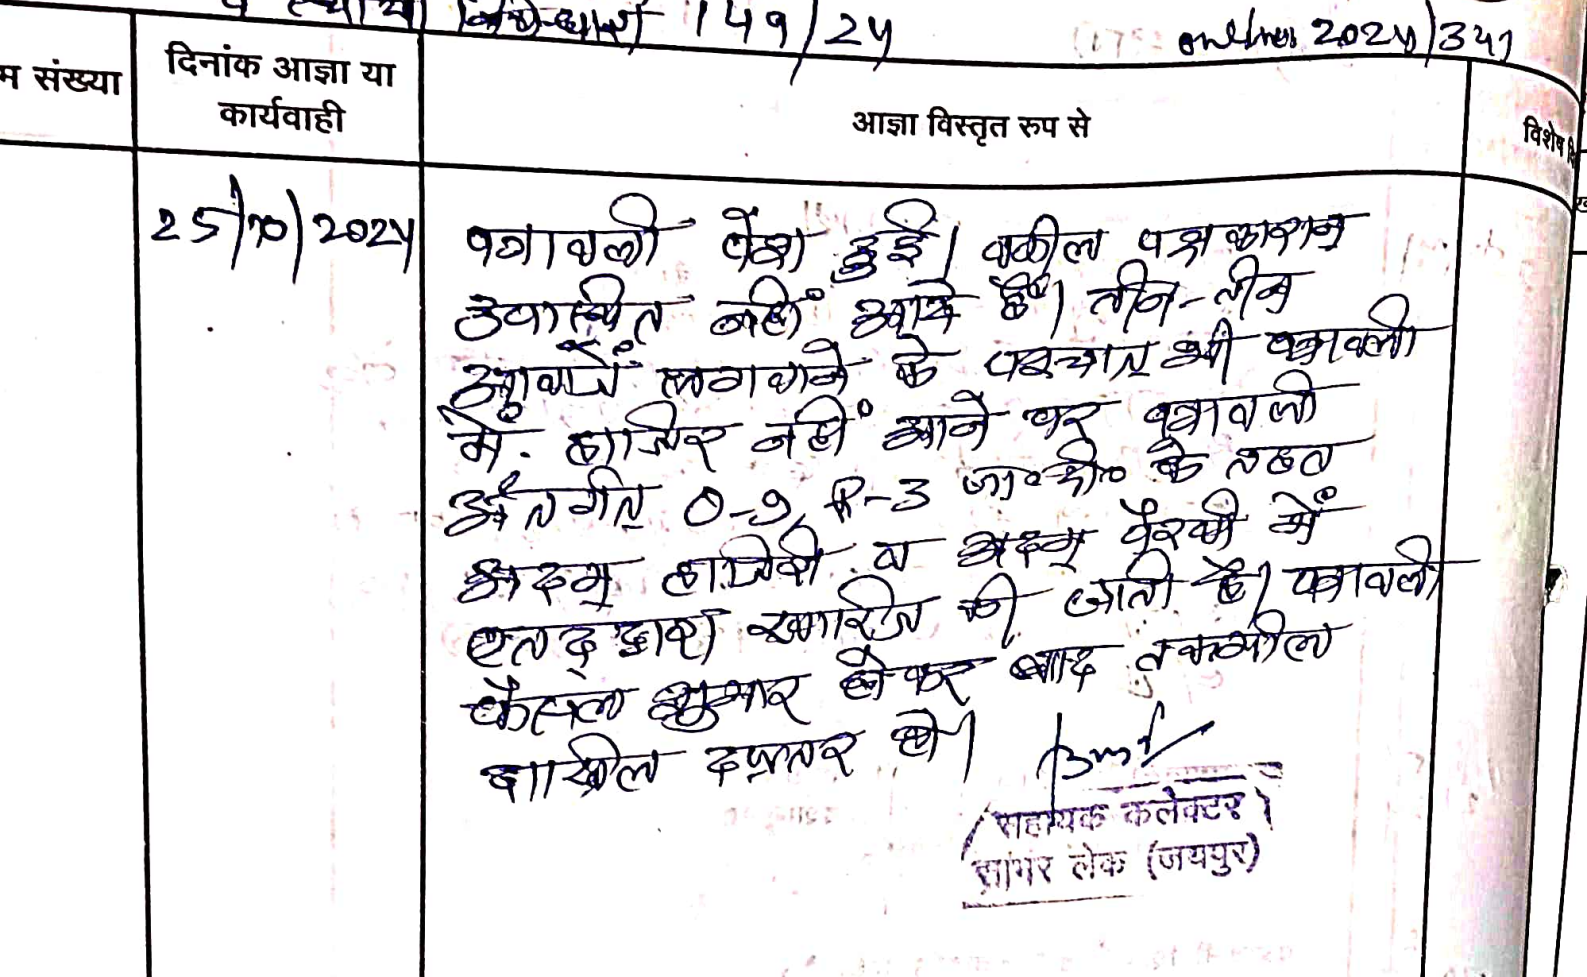 149/24 online 2024/341
म संख्या
दिनांक आज्ञा या
कार्यवाही
आज्ञा विस्तृत रुप से
विशेष
25/10/2024
पत्रावली पेश हुई। वकील पक्षकारान
उपास्थित नहीं आये हैं। तीन-तीन
आवाजें लगवाने के पश्चात् भी पत्रावली
में हाजिर नहीं आने पर पत्रावली
अंतर्गत 0-9, R-3 जा०दी० के तहत
अदम् हाजिरी व अदम् पैरवी में
एतद् द्वारा खारिज की जाती है। पत्रावली
फैसल शुमार होकर बाद तकमील
दाखील दफ्तर हो।
सहायक कलेक्टर
सांभर लेक (जयपुर)